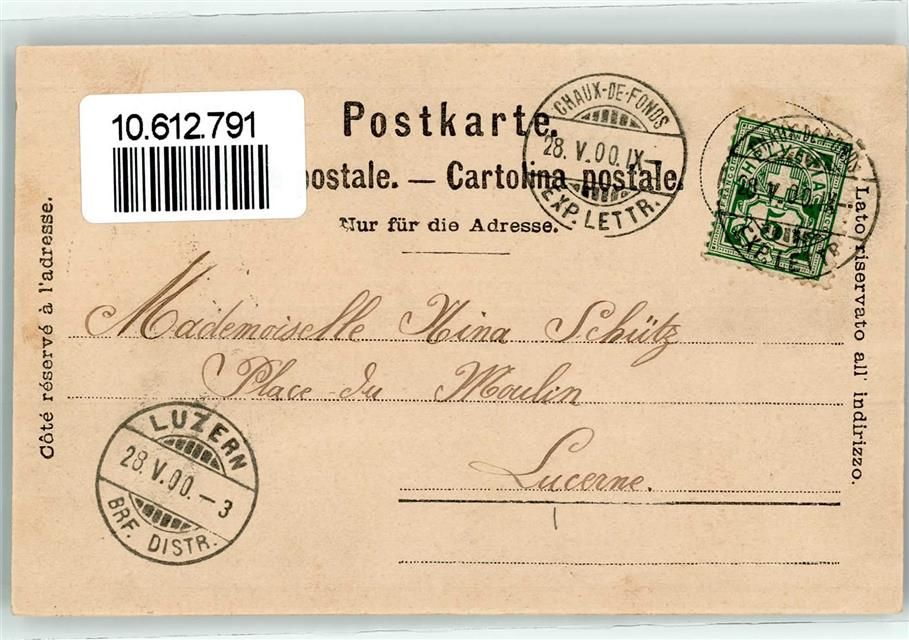 10.612.791
Postkarte.
postale. — Cartolina postale.
Nur für die Adresse.
CHAUX-DE-FONDS
28. V. 00. IX–
EXP. LETTR.
Côté réservé à l'adresse.
Lato riservato all' indirizzo.
Mademoiselle Nina Schütz
Place du Moulin
Lucerne.
LUZERN
28. V. 00. – 3
BRF. DISTR.